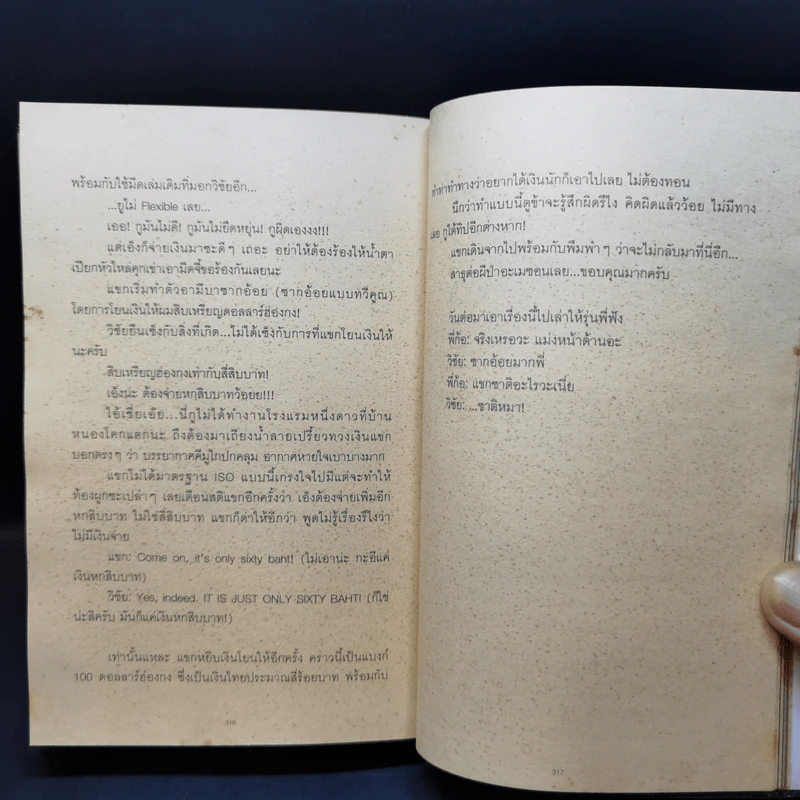 พร้อมกับใช้มีดเล่มเดิมที่มอกวิชัยอีก...
...ยูไม่ Flexible เลย...
เออ! กูมันไม่ดี! กูมันไม่ยืดหยุ่น! กูผิดเองงง!!!
แต่เอ็งก็จ่ายเงินมาซะดีๆ เถอะ อย่าให้ต้องร้องไห้น้ำตา
เปียกหัวไหล่คุกเข่าเอามีดจี้ขอร้องกันเลยนะ
แขกเริ่มทำตัวอามีบาซากอ้อย (ซากอ้อยแบบทวีคูณ)
โดยการโยนเงินให้ผมสิบเหรียญดอลลาร์ฮ่องกง!
วิชัยยืนเซ็งกับสิ่งที่เกิด...ไม่ได้เซ็งกับการที่แขกโยนเงินให้
นะครับ
สิบเหรียญฮ่องกงเท่ากับสี่สิบบาท!
เอ็งน่ะ ต้องจ่ายหกสิบบาทว้อยย!!!
ไอ้เชี่ยเอ๊ย...นี่กูไม่ได้ทำงานโรงแรมหนึ่งดาวที่บ้าน
หนองโคกแตกนะ ถึงต้องมาเถียงน้ำลายเปรี้ยวทวงเงินแขก
บอกตรงๆ ว่า บรรยากาศคีมูไถปกคลุม อากาศหายใจเบาบางมาก
แขกไม่ได้มาตรฐาน ISO แบบนี้เกรงใจไปมีแต่จะทำให้
ท้องผูกซะเปล่าๆ เลยเตือนสติแขกอีกครั้งว่า เอ็งต้องจ่ายเพิ่มอีก
หกสิบบาท ไม่ใช่สี่สิบบาท แขกก็ด่าให้อีกว่า พูดไม่รู้เรื่องรึไงว่า
ไม่มีเงินจ่าย
แขก: Come on, it's only sixty baht! (ไม่เอาน่ะ กะอีแค่
เงินหกสิบบาท)
วิชัย: Yes, indeed. IT IS JUST ONLY SIXTY BAHT! (ก็ใช่
น่ะสิครับ มันก็แค่เงินหกสิบบาท!)
เท่านั้นแหละ แขกหยิบเงินโยนให้อีกครั้ง คราวนี้เป็นแบงก์
100 ดอลลาร์ฮ่องกง ซึ่งเป็นเงินไทยประมาณสี่ร้อยบาท พร้อมกับ
316
ทำท่าทำทางว่าอยากได้เงินนักก็เอาไปเลย ไม่ต้องทอน
นึกว่าทำแบบนี้ตูข้าจะรู้สึกผิดรึไง คิดผิดแล้วว้อย ไม่มีทาง
เลย กูได้ทิปอีกต่างหาก!
แขกเดินจากไปพร้อมกับพึมพำๆ ว่าจะไม่กลับมาที่นี่อีก...
สาธุต่อผีป่าอะเมซอนเลย...ขอบคุณมากครับ
วันต่อมาเอาเรื่องนี้ไปเล่าให้รุ่นพี่ฟัง
พี่ก้อ: จริงเหรอวะ แม่งหน้าด้านอะ
วิชัย: ซากอ้อยมากพี่
พี่ก้อ: แขกชาติอะไรวะเนี่ย
วิชัย: ...ชาติหมา!
317